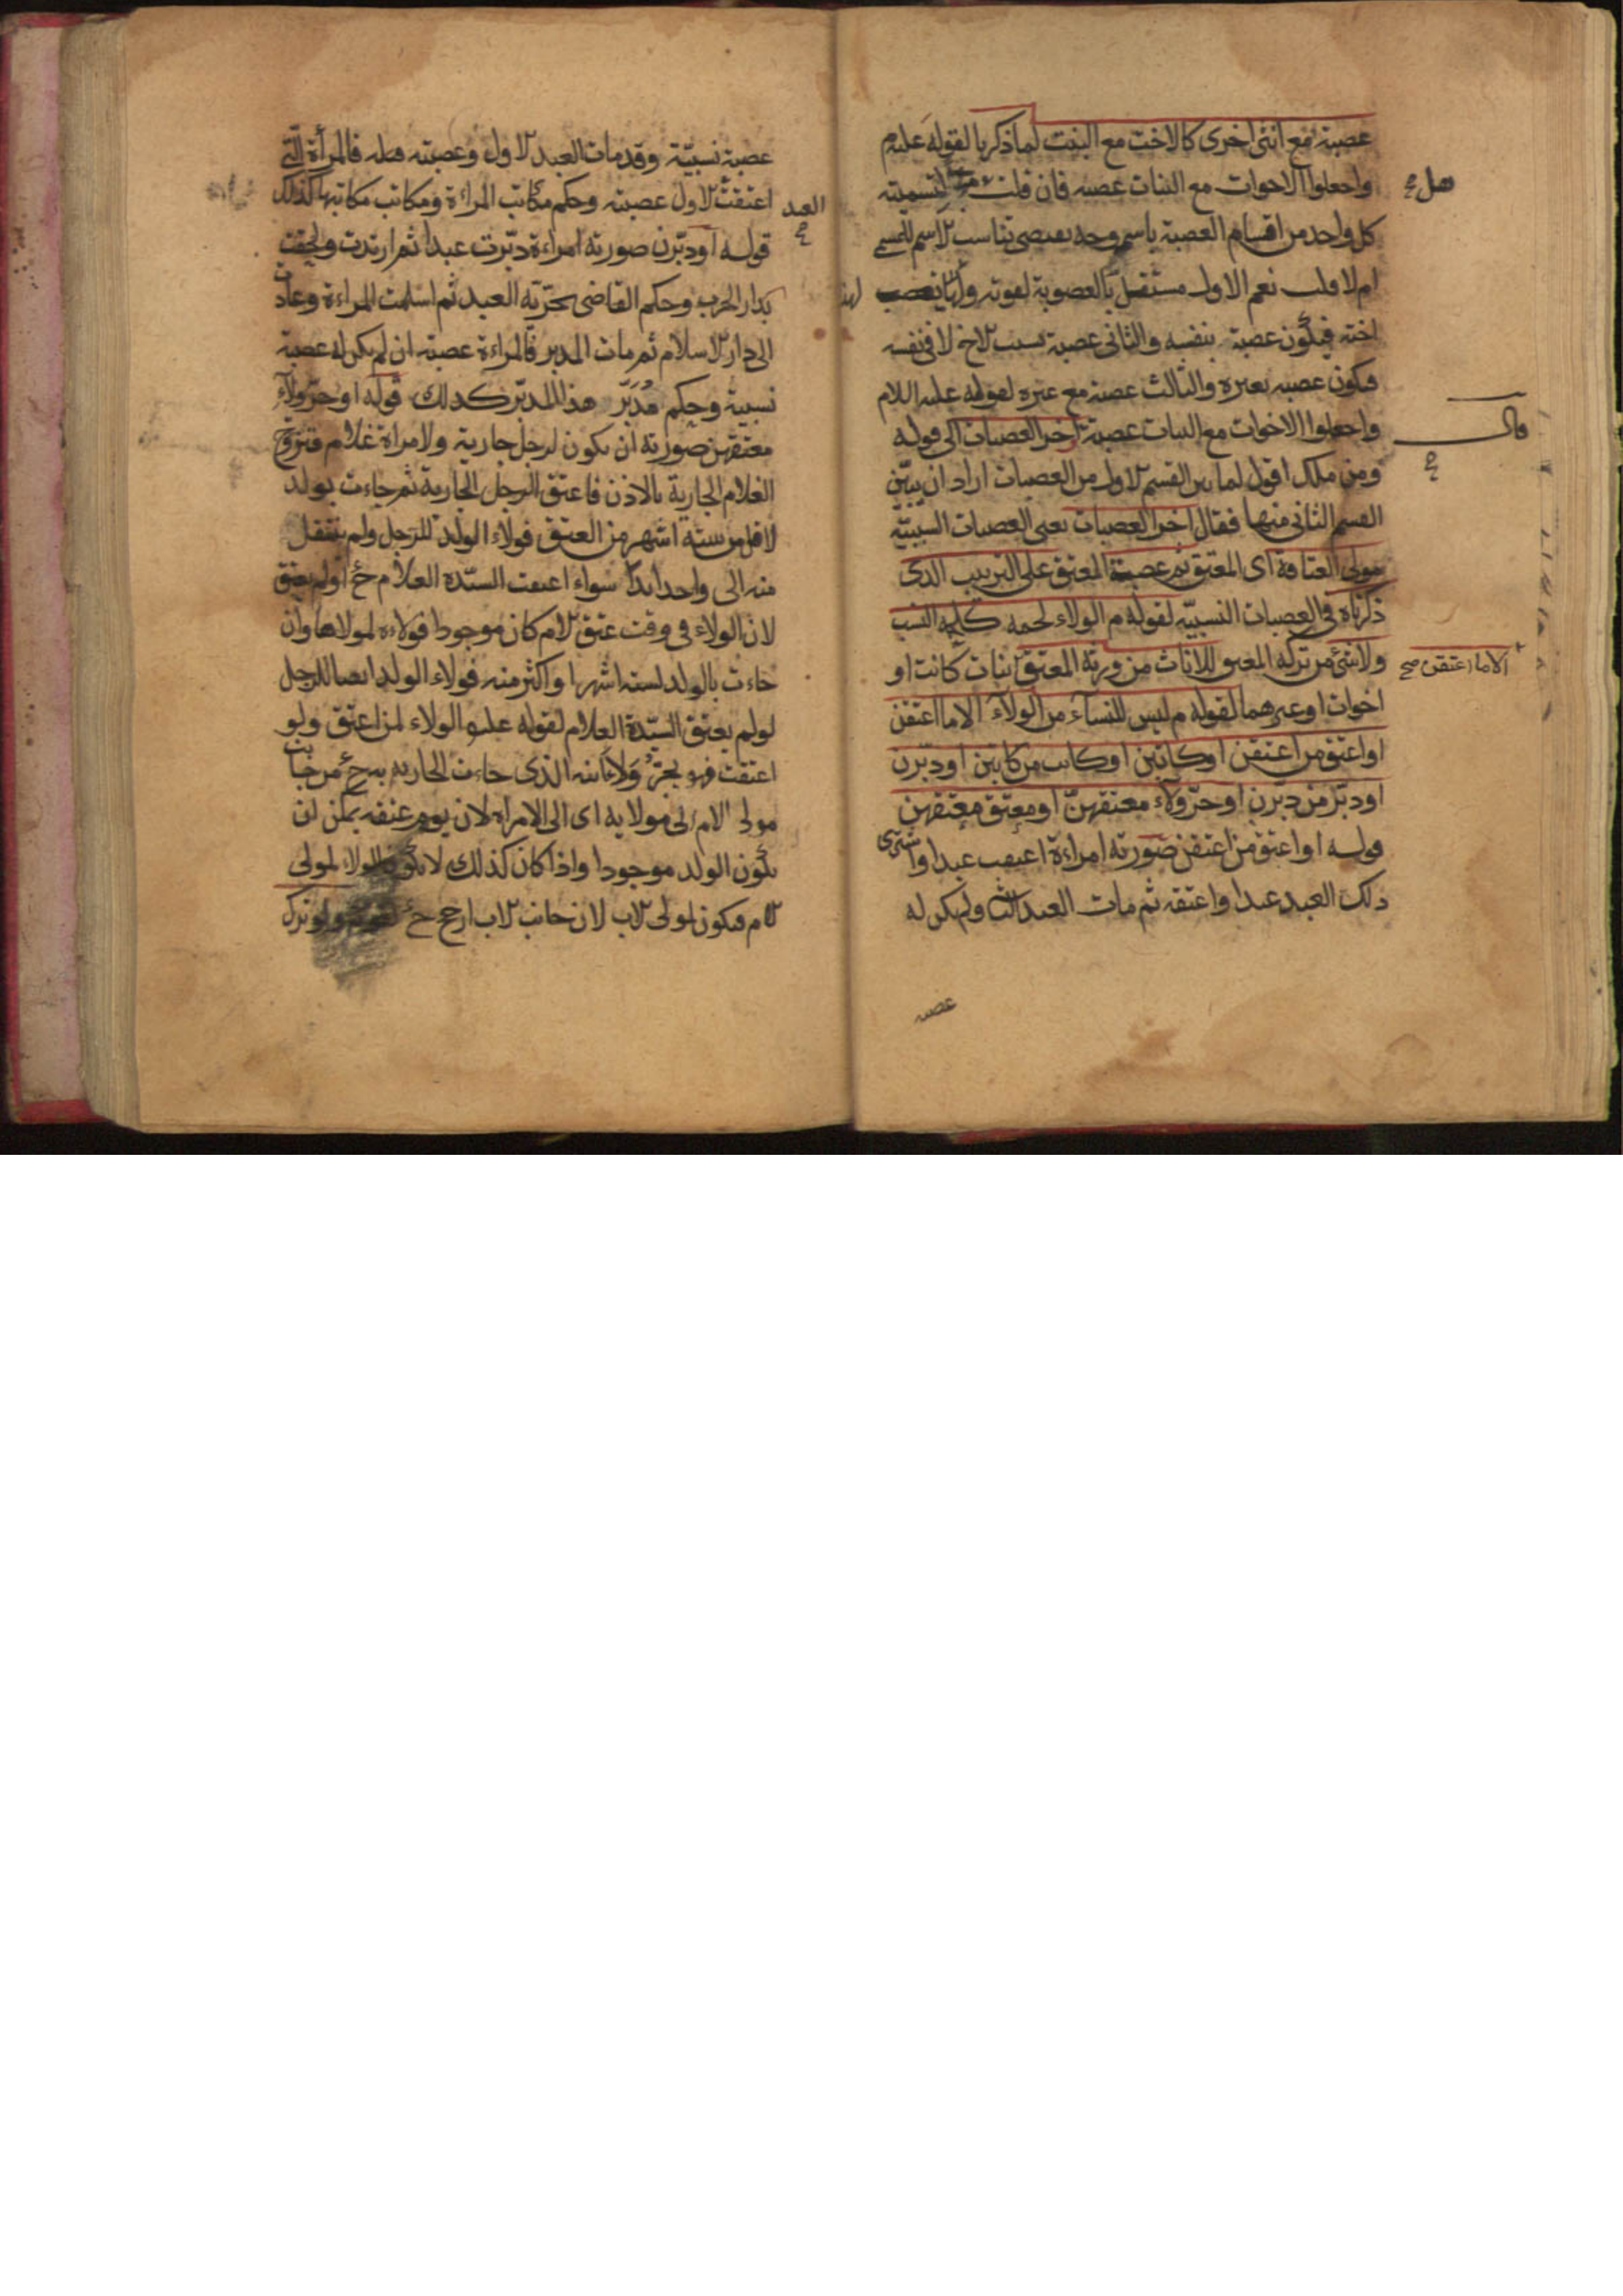 عصبة مع انثى اخرى كالاخت مع البنت لما ذكرنا لقوله علىه م
واجعلوا الاخوات مع البنات عصبه فان قلت لتسميته
هل
كل واحد من اقسام العصبة باسم وجه يقتضى تناسب الاسم للمسمى
ام لا قلت نعم الاول مستقل بالعصوبة لقوته ولهذا يعصب
اخته فيكون عصبة بنفسه والثانى عصبة بسبب الاخ لا فى نفسه
فيكون عصبه بغيره والثالث عصبة مع غيره لقوله عليه السلام
واجعلوا الاخوات مع البنات عصبة اخر العصبات الى قوله
قال
ومن ملك اقول لما بين القسم الاول من العصبات اراد ان يبيّن
القسم الثانى منها فقال اخر العصبات يعنى العصبات السببيّة
مولى العتاقة اى المعتق ثم عصبة المعتق على الترتيب الذى
ذكرناه فى العصبات النسبيّة لقوله م الولاء لحمه كلحمة النسب
ولا شئ من تركه المعتق للاناث من ورثة المعتق بنات كانت او
الا ما اعتقن صح
اخوات او غيرهما لقوله م ليس للنساء من الولاء الا ما اعتقن
او اعتق من اعتقن او كاتبن او كاتب من كاتبن او دبّرن
او دبّر من دبّرن او جرّ ولاء معتقهنّ او معتق معتقهن
قوله او اعتق من اعتقن صورته امراءة اعتقت عبدا واشترى
ذلك العبد عبدا واعتقه ثم مات العبد الثانى ولم يكن له
عصبة
عصبة نسبيّة وقد مات العبد الاول وعصبته قبله فالمرأة التى
اعتقت الاول عصبته وحكم مكاتب المراءة ومكاتب مكاتبها كذلك
العبد
قوله او دبّرن صورته امراءة دبّرت عبدا ثم ارتدت ولحقت
بدار الحرب وحكم القاضى بحرّيّة العبد ثم اسلمت المراءة وعادت
الى دار الاسلام ثم مات المدبر فالمراءة عصبته ان لم يكن له عصبة
نسبية وحكم مُدَبَّر هذا المدبّر كذلك قوله او جرّ ولاء
معتقهن صورته ان يكون لرجل جارية ولامراة غلام فتزوّج
الغلام الجارية بالاذن فاعتق الرجل الجارية ثم جاءت بولد
لاقل من ستة اشهر من العتق فولاء الولد للرجل ولم ينتقل
منه الى واحد ابدا سواء اعتقت السيّدة الغلام ح او لم يعتق
لان الولاء فى وقت عتق الام كان موجودا فولاءه لمولاها وان
جاءت بالولد لستة اشهر او اكثر منه فولاء الولد ايضا للرجل
لو لم يعتق السيّدة الغلام لقوله عليه الولاء لمن اعتق ولو
اعتقت فهو يجرّ ولاء ابنه الذى جاءت الجارية به ح من جانب
مولى الام الى مولاته اى الى الامراة لان يوم عتقه يمكن ان
يكون الولد موجودا واذا كان كذلك لا يكون الولاء لمولى
الام فيكون لمولى الاب لان جانب الاب ارجح ح قوله ولو ترك